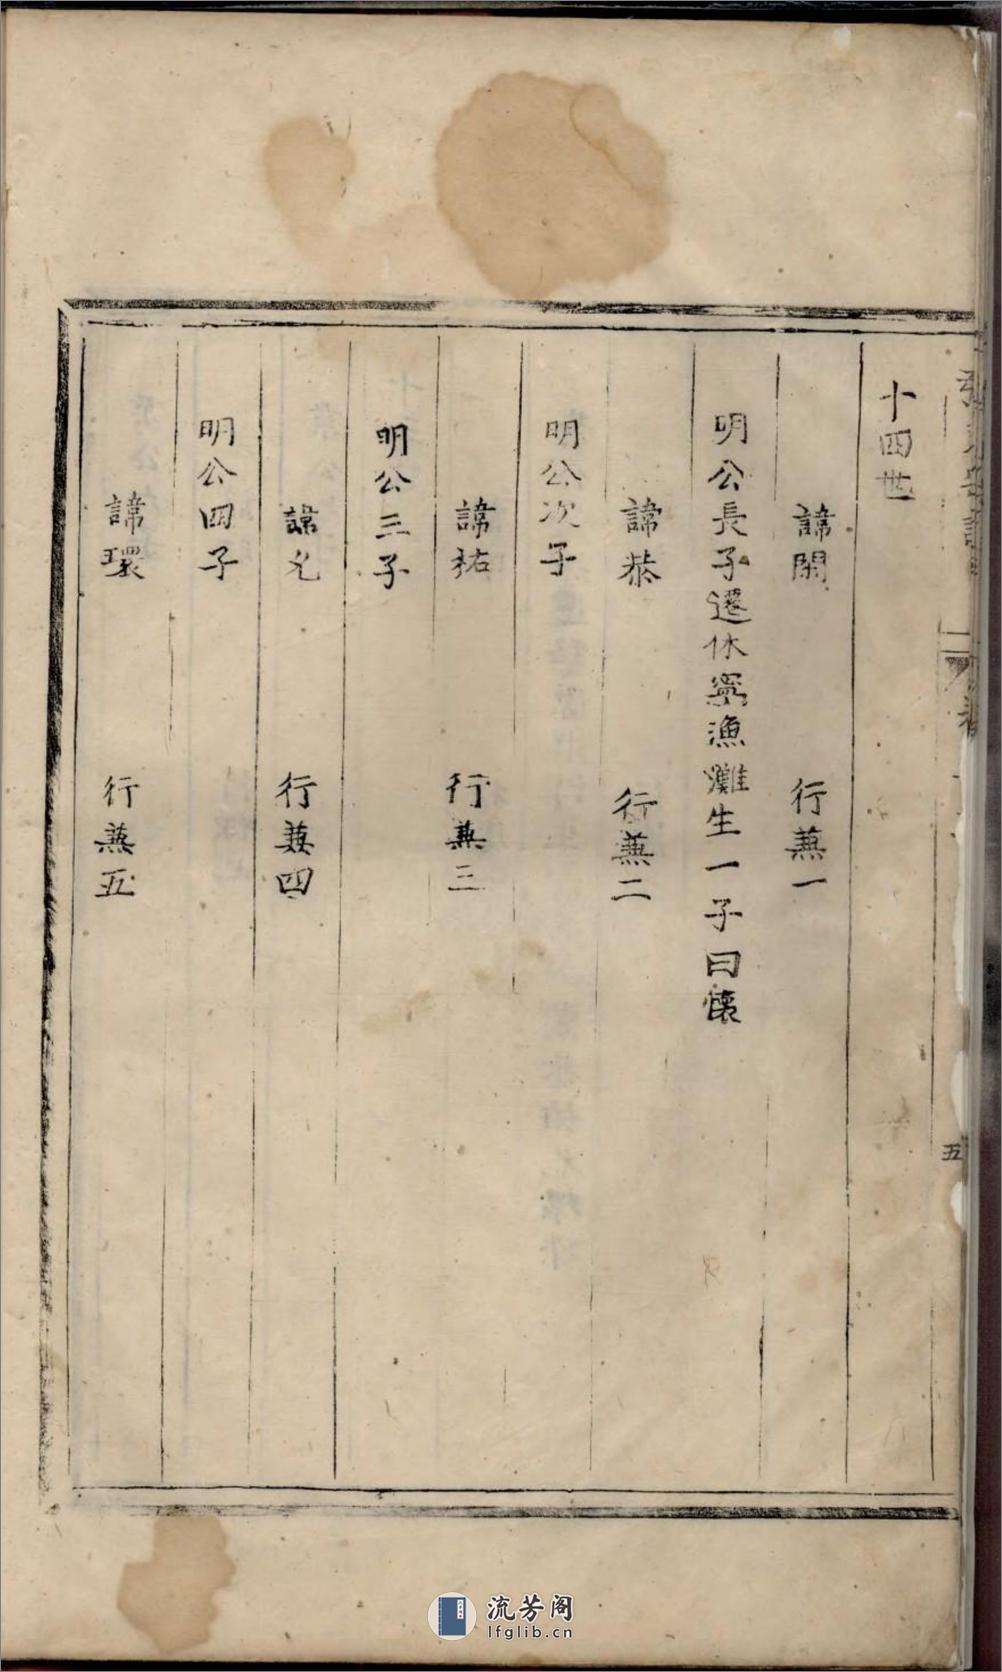 十四世
諱閑 行蕪一
明公長子遷休寧漁灘生一子曰懷
諱恭 行蕪二
明公次子
諱祐 行蕪三
明公三子
諱允 行蕪四
明公四子
諱環 行蕪五
五
流芳阁
lfglib.cn